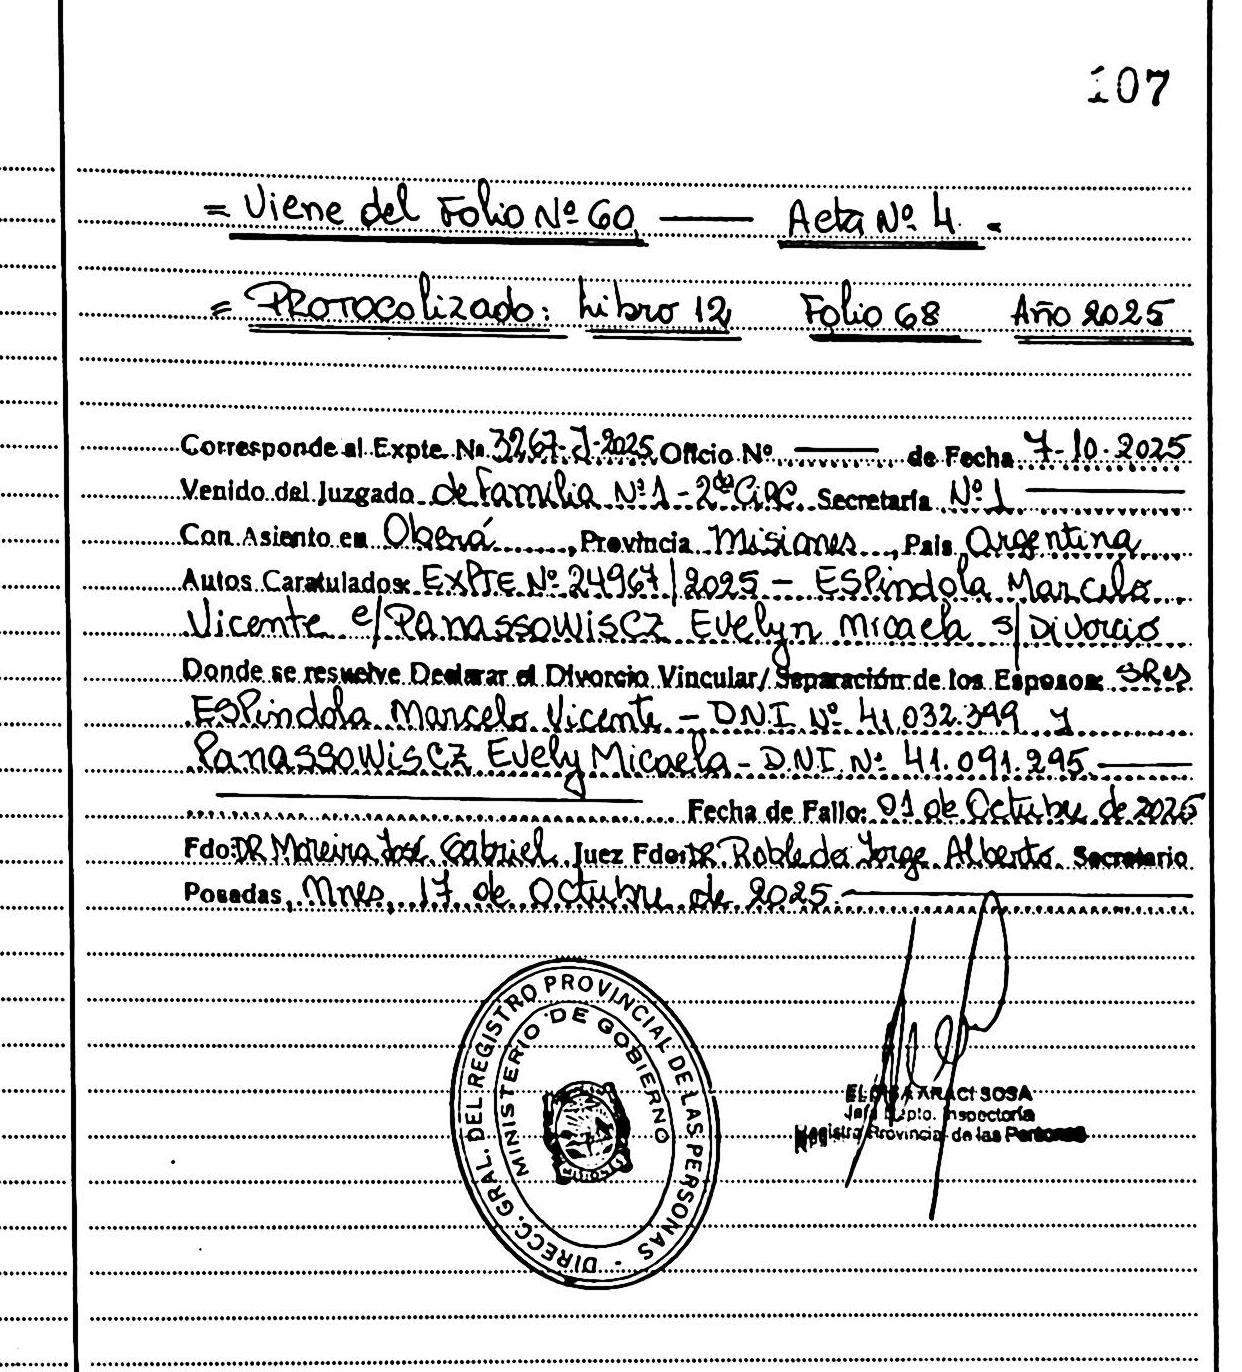 107
= Viene del Folio Nº 60 — Acta Nº 4. -
= PROTOCOLIZADO: Libro 12 Folio 68 Año 2025
Corresponde al Expte. Nº 3267-J-2025 Oficio Nº — de Fecha 7-10-2025
Venido del Juzgado de Familia Nº 1 - 2da Circ. Secretaría Nº 1 —
Con Asiento en Oberá, Provincia Misiones, País Argentina
Autos Caratulados: EXPTE Nº 24967/2025 - ESPindola Marcelo
Vicente c/PANASSOWISCZ Evelyn Micaela s/Divorcio
Donde se resuelve Declarar el Divorcio Vincular/Separación de los Esposos: SRes
ESPindola Marcelo Vicente - DNI Nº 41.032.399 y
PANASSOWISCZ Evely Micaela - D.N.I. Nº 41.091.295 —
Fecha de Fallo: 01 de Octubre de 2025
Fdo: DR Moreira José Gabriel Juez Fdo: DR Robledo Jorge Alberto Secretario
Posadas, Mnes, 17 de Octubre de 2025. —
DIRECC. GRAL. DEL REGISTRO PROVINCIAL DE LAS PERSONAS -
MINISTERIO DE GOBIERNO
ELOISA ARACI SOSA
Jefa Dpto. Inspectoría
Registro Provincial de las Personas